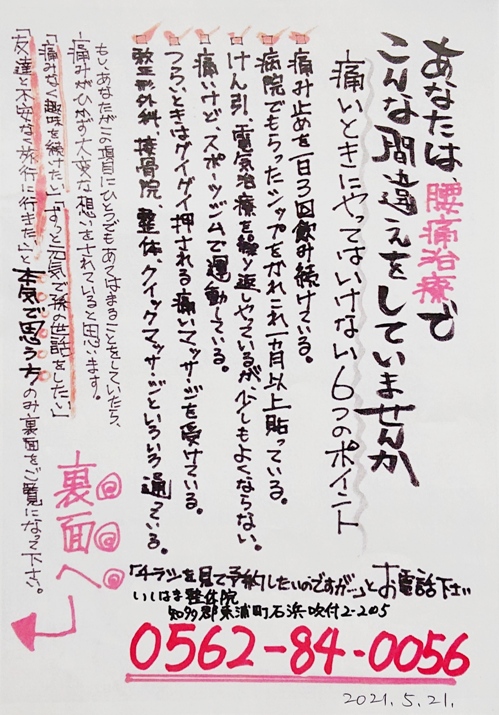 あなたは、腰痛治療で
こんな間違えをしていませんか
痛いときにやってはいけない6つのポイント
痛み止めを一日3回飲み続けている。
病院でもらったシップをかれこれ一カ月以上貼っている。
けん引、電気治療を繰り返しやっているが、少しもよくならない。
痛いけど、スポーツジムで運動している。
つらいときはグイグイ押される痛いマッサージを受けている。
整形外科、接骨院、整体、クイックマッサージといろいろ通っている。
もし、あなたがこの項目にひとつでもあてはまることをしていたら、
痛みがひかず大変な想いをされていると思います。
「痛みなく趣味を続けたい」「ずっと元気で孫の世話をしたい」
「友達と不安なく旅行に行きたい」と本気で思う方のみ裏面をご覧になって下さい。
裏面へ
「チラシを見て予約したいのですが…」とお電話下さい
いしはま整体院
知多郡東浦町石浜吹付2-205
0562-84-0056
2021.5.21.